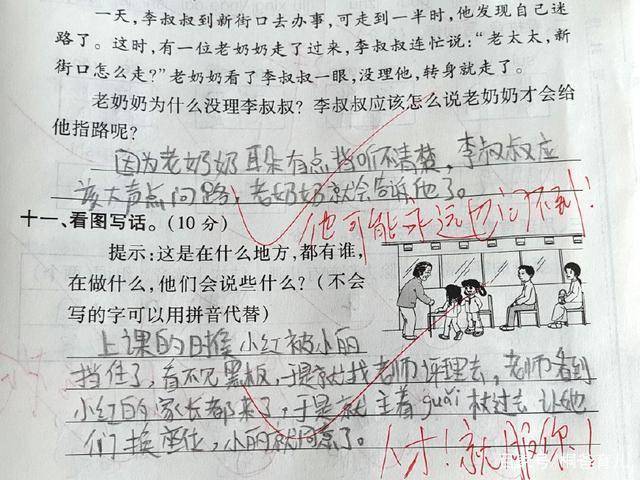 一天，李叔叔到新街口去办事，可走到一半时，他发现自己迷
路了。这时，有一位老奶奶走了过来，李叔叔连忙说：“老太太，新
街口怎么走？”老奶奶看了李叔叔一眼，没理他，转身就走了。
老奶奶为什么没理李叔叔？李叔叔应该怎么说老奶奶才会给
他指路呢？
因为老奶奶耳朵有点挡听不清楚，李叔叔应
该大声点问路，老奶奶就会告诉他了。
他可能永远也问不到！
十一、看图写话。（10分）
提示：这是在什么地方，都有谁，
在做什么，他们会说些什么？（不会
写的字可以用拼音代替）
上课的时候小红被小丽
挡住了，看不见黑板，于是就找老师评理去，老师看到
小红的家长都来了，于是就主着guǎi杖过去让她
们换座位，小丽就同意了。
人才！就服你！